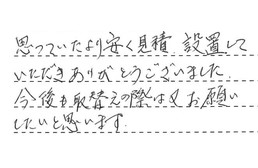 思っていたより安く見積 設置して
いただきありがとうございました.
今後も取替えの際は又お願い
したいと思います.